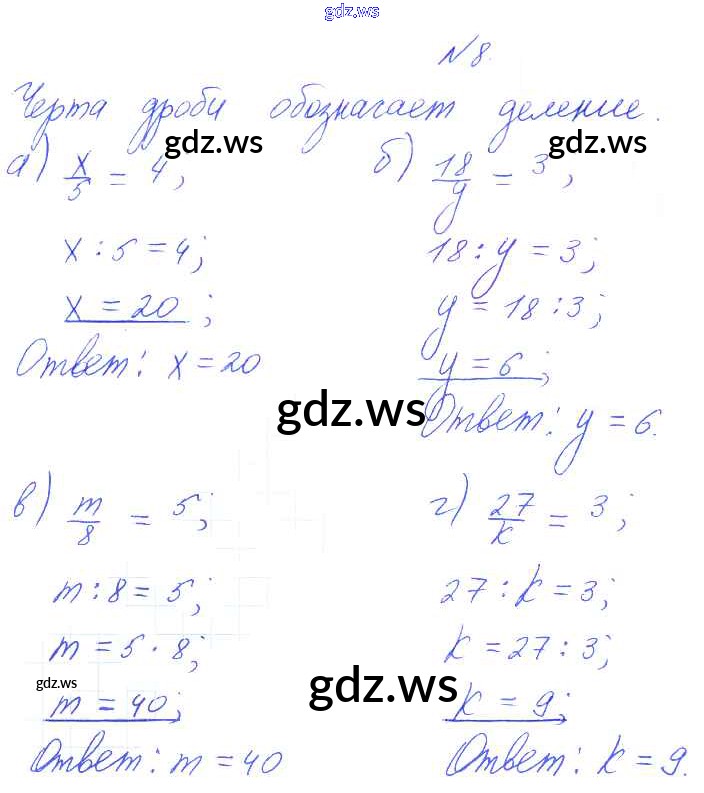 gdz.ws
№ 8.
Черта дроби обозначает деление.
gdz.ws gdz.ws
а) x/5 = 4;
x : 5 = 4;
x = 20;
Ответ: x = 20
б) 18/y = 3;
18 : y = 3;
y = 18 : 3;
y = 6;
Ответ: y = 6.
gdz.ws
в) m/8 = 5;
m : 8 = 5;
m = 5 · 8;
m = 40;
Ответ: m = 40
gdz.ws
г) 27/k = 3;
27 : k = 3;
k = 27 : 3;
k = 9;
Ответ: k = 9.
gdz.ws